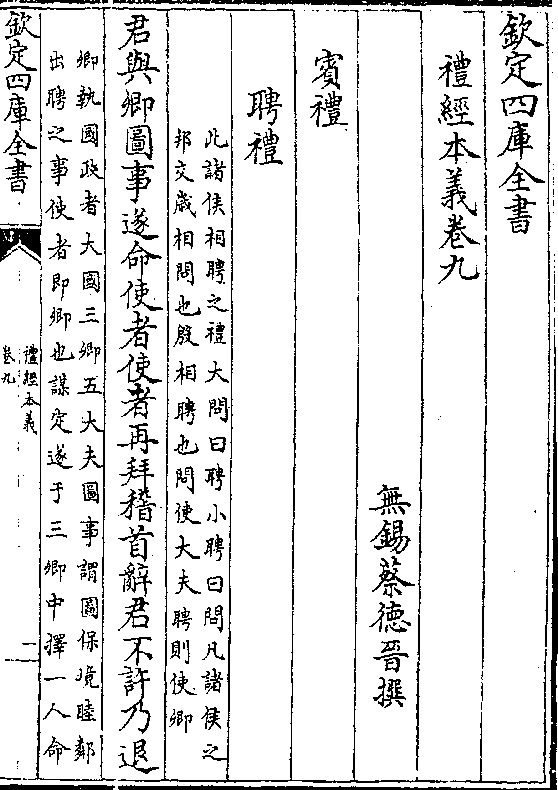 欽定四庫全書
禮經本義卷九
無錫蔡德晉撰
賓禮
聘禮
此諸侯相聘之禮大問曰聘小聘曰問凡諸侯之
邦交歲相問也殷相聘也問使大夫聘則使卿
君與卿圖事遂命使者使者再拜稽首辭君不許乃退
卿執國政者大國三卿五大夫圖事謂圖保境睦鄰
出聘之事使者即卿也謀定遂于三卿中擇一人命
欽定四庫全書
禮經本義
卷九
一